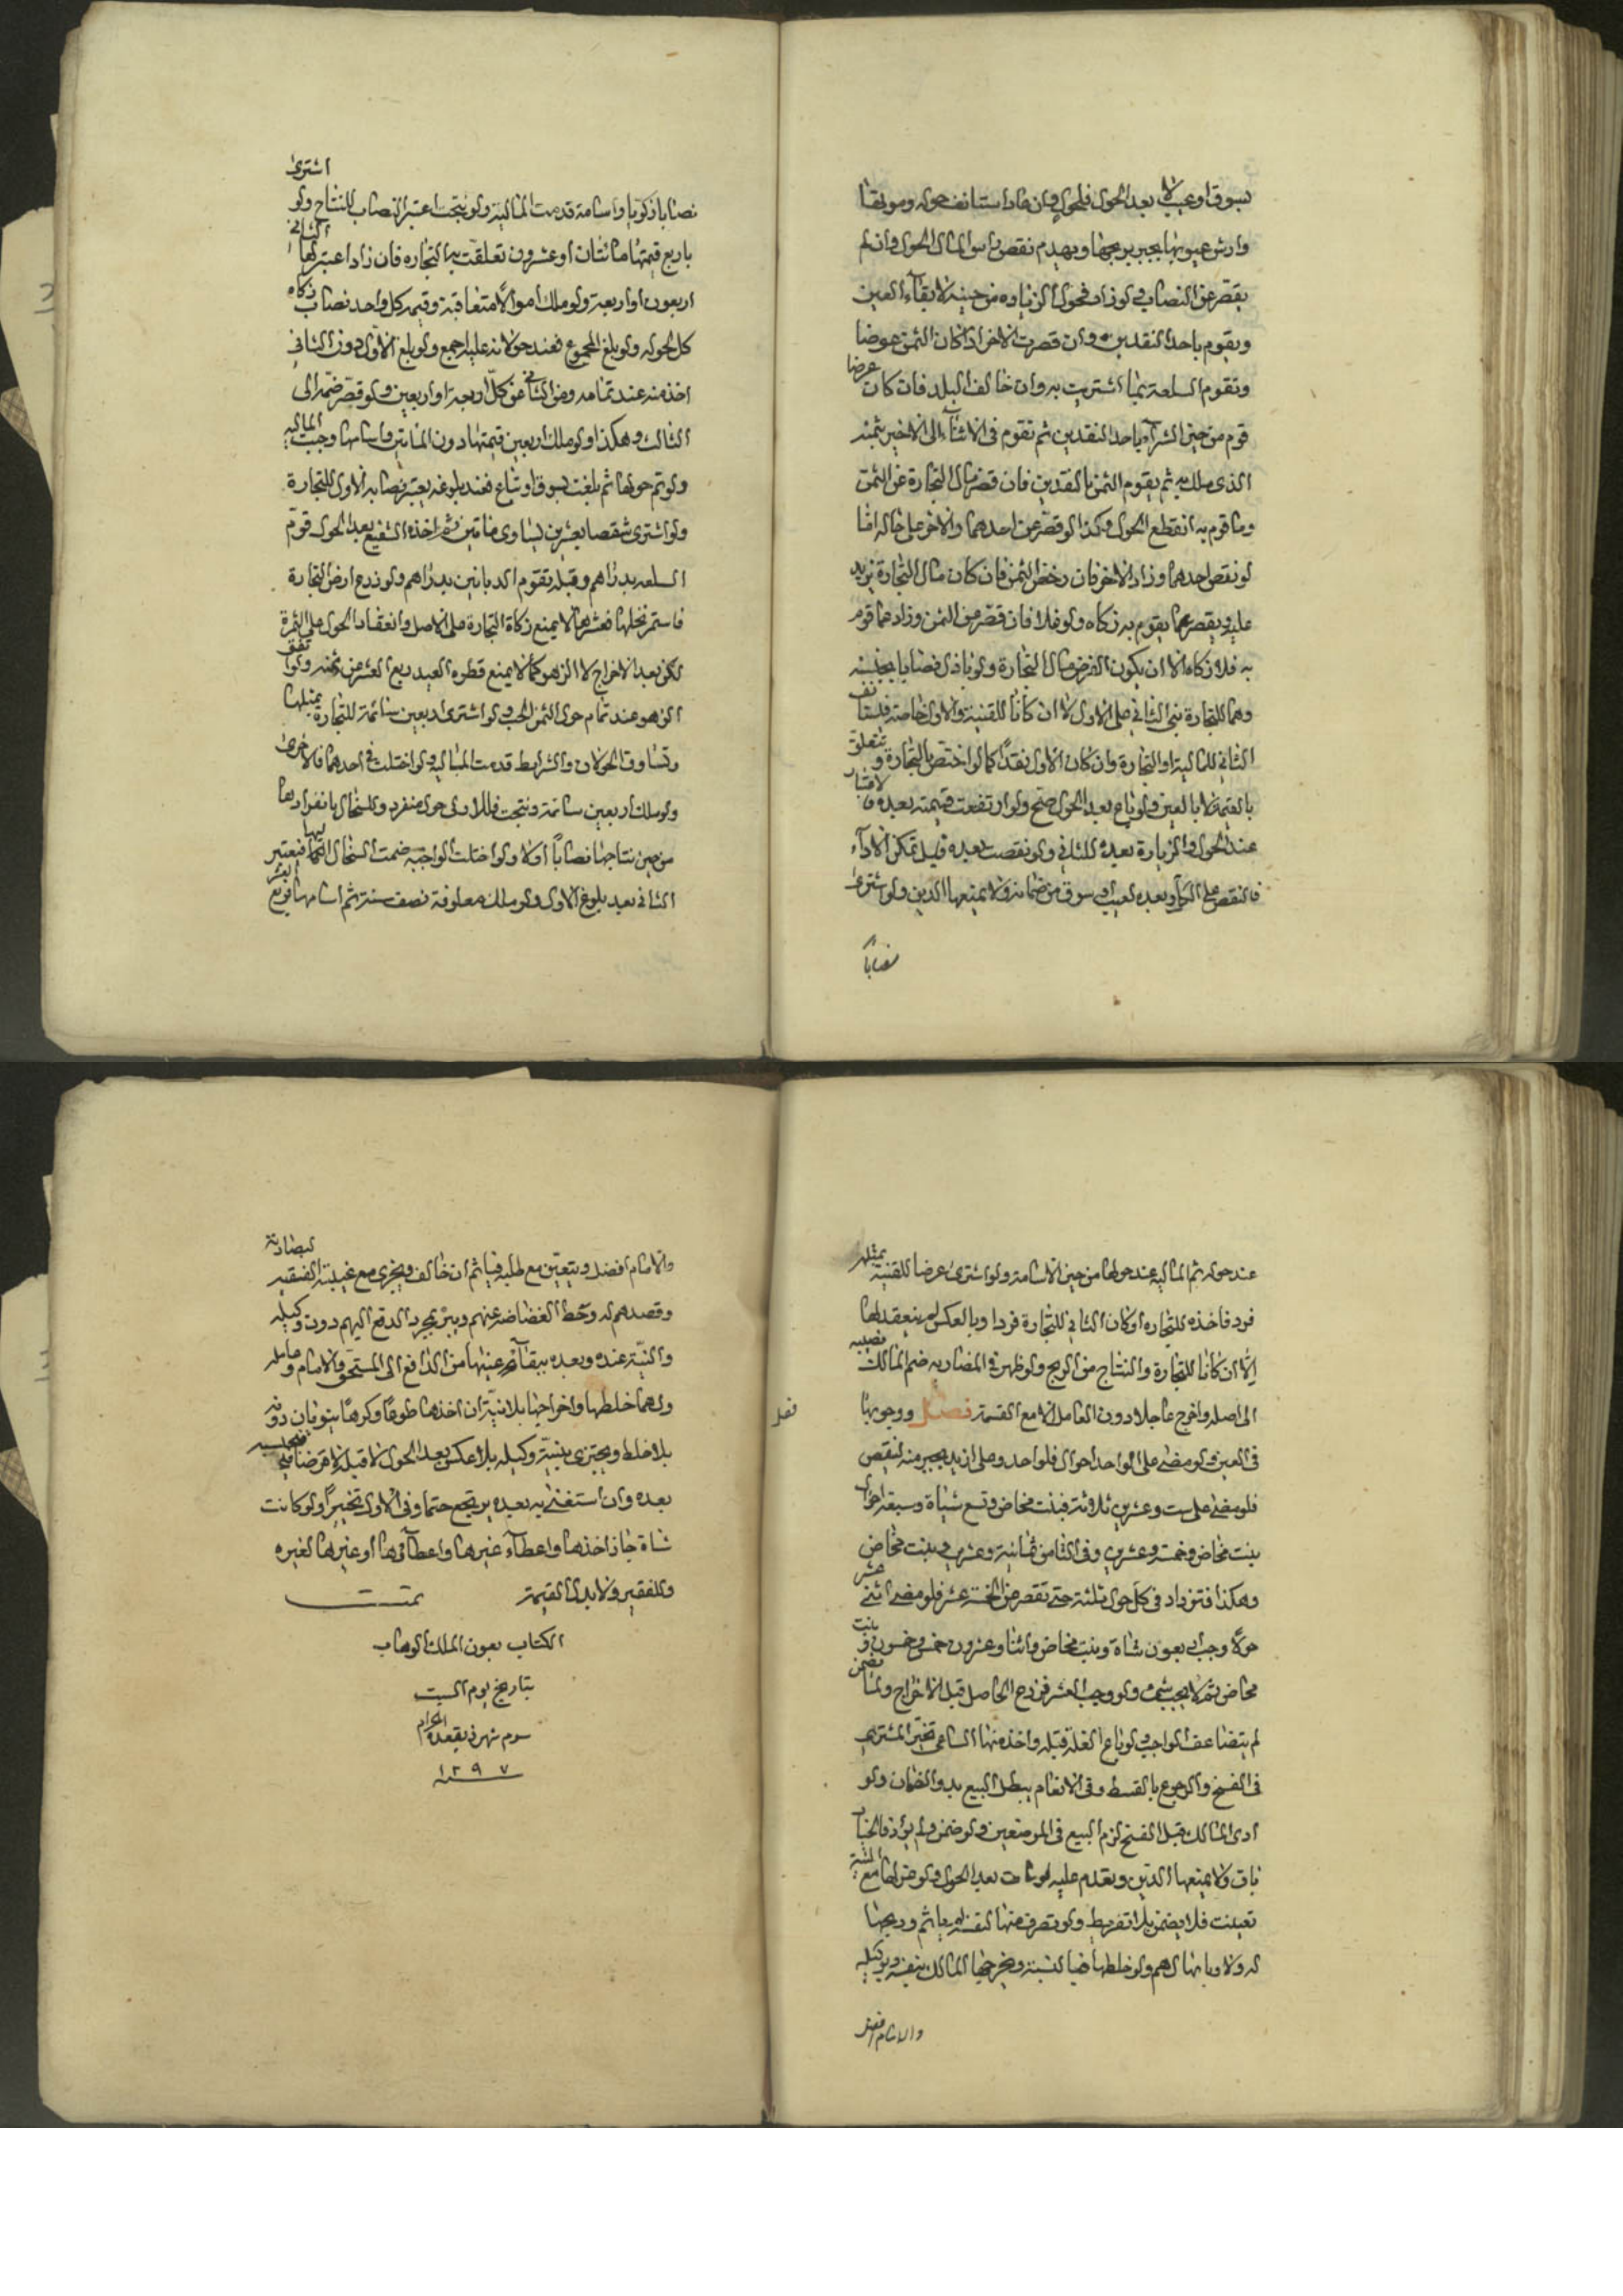 بسوق او عيب لا بعد الحول فلحول وان عاد استانف حوله ومو بقا
وارش عيوبها يجبر بربحها ويهدم نقص راس المال الحول وان لم
يقصر عن النصاب ولو زاد فحول الزياده من حينه لابقاء العين
ويقوم باحد النقدين وان قصرت الاخر اذا كان الثمن عوضا
وتقوم السلعة بما اشتريت به وان خالف البلد فان كان عرضا
قوم من حين الشراء باحد النقدين ثم تقوم فى الاثناء الى الاخير بثمنه
الذى ملك به ثم يقوم الثمن بالنقدين فان قصر مال التجارة عن الثمن
وما قوم به انقطع الحول وكذا لو قصر عن احدهما والاخر على حاله اما
لو نقص احدهما وزاد الاخر فان رخص الثمن فان كان مال التجارة يزيد
عليه ويقصر عما يقوم به زكاه ولو فلا فان قصر عن الثمن وزاد عما قوم
به فلا زكاه الا ان يكون الفرض مال التجارة ولو بادل نصابا بجنسه
وهما للتجارة بنى الثانى على الاول لا ان كانا للقنية والاول خاصة فيستانف
الثانى للمالية او التجارة وان كان الاول نقدا كما لو اختص بالتجارة وتتعلق
بالقيمة لا بالعين ولو باع بعد الحول صح ولو ارتفعت قيمته بعده فالاعتبار
عند الحول والزيارة بعده للثانى ولو نقصت بعده قبل تمكن الاداء
فالنقص على الكل وبعده لعيب او سوق من ضمانه ولا يمنعها الدين ولو اشترى
نصابا
نصابا ذكويا واسامه قدمت المالية ولو نتجت اعتبر النصاب للنتاج ولو اشترى
باربع قيمتها مائتان او عشرون تعلقت بها التجاره فان زاد اعتبر لها الثانى
اربعون او اربعة ولو ملك اموالا متعاقبة وقيمه كل واحد نصاب زكاه
كل لحوله ولو بلغ المجموع فعند حولانه عليه اجمع ولو بلغ الاول دون الثانى
اخذ منه عند تمامه ومن الثانى عن كل اربعة او اربعين ولو قصر ضم الى
الثالث وهكذا ولو ملك اربعين قيمتها دون المائتين واسامها وجبت الماليه
ولو تم حولها ثم بلغت بسوق او نتاج فعند بلوغه يعتبر نصابه الاول للتجارة
ولو اشترى شقصا بعشرين يساوى مائتين اخذه الشفيع بعد الحول قوم
السلعه بدراهم وقبله تقوم الدنانير بدراهم ولو زرع ارض التجارة
فاستمر نخلها فعشرها لا يمنع زكاة التجارة على الاصل وانعقاد الحول على الثمرة
لكن بعد الاخراج لا الزهو كما لا يمنع فطره العبد ربع العشر من ثمنه ولو اتفق
الزهو عند تمام حول الثمن الحب ولو اشترى اربعين سائمة للتجارة بمثلها
وتساوق الحولان والشرايط قدمت المالية ولو اختلت فى احدهما فالاخرى
ولو ملك اربعين سائمة ونتجت فللاولى حول منفرد وللسخال بانفرادها
من حين نتاجها نصابا اولا ولو اختلت الواجبة ضمت السخال اليها فيعتبر
الثانى بعد بلوغ الاول ولو ملك معلوفة نصف سنة ثم اسامها فربع العشر
عند حوله ثم المالية عند حولها من حين الاسامه ولو اشترى عرضا للقنية بمثله
فرد فاخذه للتجاره او كان الثانى للتجارة فرد او بالعكس لم ينعقد لها
الا ان كانا للتجارة والنتاج من الربح ولو ظهر فى المضاربه ضم المالك نصيبه
الى اصله واخرج عاجلا دون العامل الا مع القسمة فصل ووجوبها
فصل
فى العين فلو مضى على الواحد احوال فلواحد وعلى ازيد يجبر منه لنقص
فلو مضى على ست وعشرين ثلاثة فبنت مخاض وتسع شياة وسبعة احوال
بنت مخاض وخمسة وعشرين وفى الثامن ثمانية وعشرين وبنت مخاض
وهكذا فتزداد فى كل حول ثلثة حتى تقصر عن الخمسة عشر فلو مضى اثنى عشر
حولا وجب اربعون شاة وبنت مخاض واثنا وعشرون خمس وخمسون وبنت
مخاض ثم لا يجب شىء ولو وجب العشر فزرع الحاصل قبل الاخراج ولما ضمن
لم يتضاعف الواجب ولو باع الغلة قبله واخذ منها الساعى تخير المشترى
فى الفسخ والرجوع بالقسط وفى الانعام يبطل البيع بدو الضمان ولو
ادى المالك قبل الفسخ لزم البيع فى الموضعين ولو ضمن ولم يؤد فالخيار
باق ولا يمنعها الدين ويقدم عليه لو مات بعد الحول ولو عزلها مع النية
تعينت فلا يضمن بلا تفريط ولو تصرف منها لنفسه ياثم وربحها
له ولا ربا بها لهم ولو خلطها فبالنسبة ويخرجها المالك بنفسه وبوكيله
والامام افضل
والامام افضل ويتعين مع طلبه فياثم ان خالف ويجزى مع غيبته الفقير لبضاعته
وقصدهم له وحط الغضاضه عنهم ويبرء بمجرد الدفع اليهم دون وكيله
والنية عنده وبعده ببقاء عينها من الدافع الى المستحق والامام وعامله
ولهما خلطها واخراجها بلا نية ان اخذها طوعا وكرها ينويان دونه
بلا خلط ويجتزى بنية وكيله بلا عكس بعد الحول لا قبله الا قرضا فيحتسبه
بعده وان استغنى به بعده يرتجع حتما وفى الاول تخيرا ولو كانت
شاة جاز اخذها واعطاء غيرها واعطائها او غيرها لغيره
وللفقير ولا بدل القيمة تمت
الكتاب بعون الملك الوهاب
بتاريخ يوم السبت
سوم شهر ذيقعده الحرام
سنه ١٢٩٧